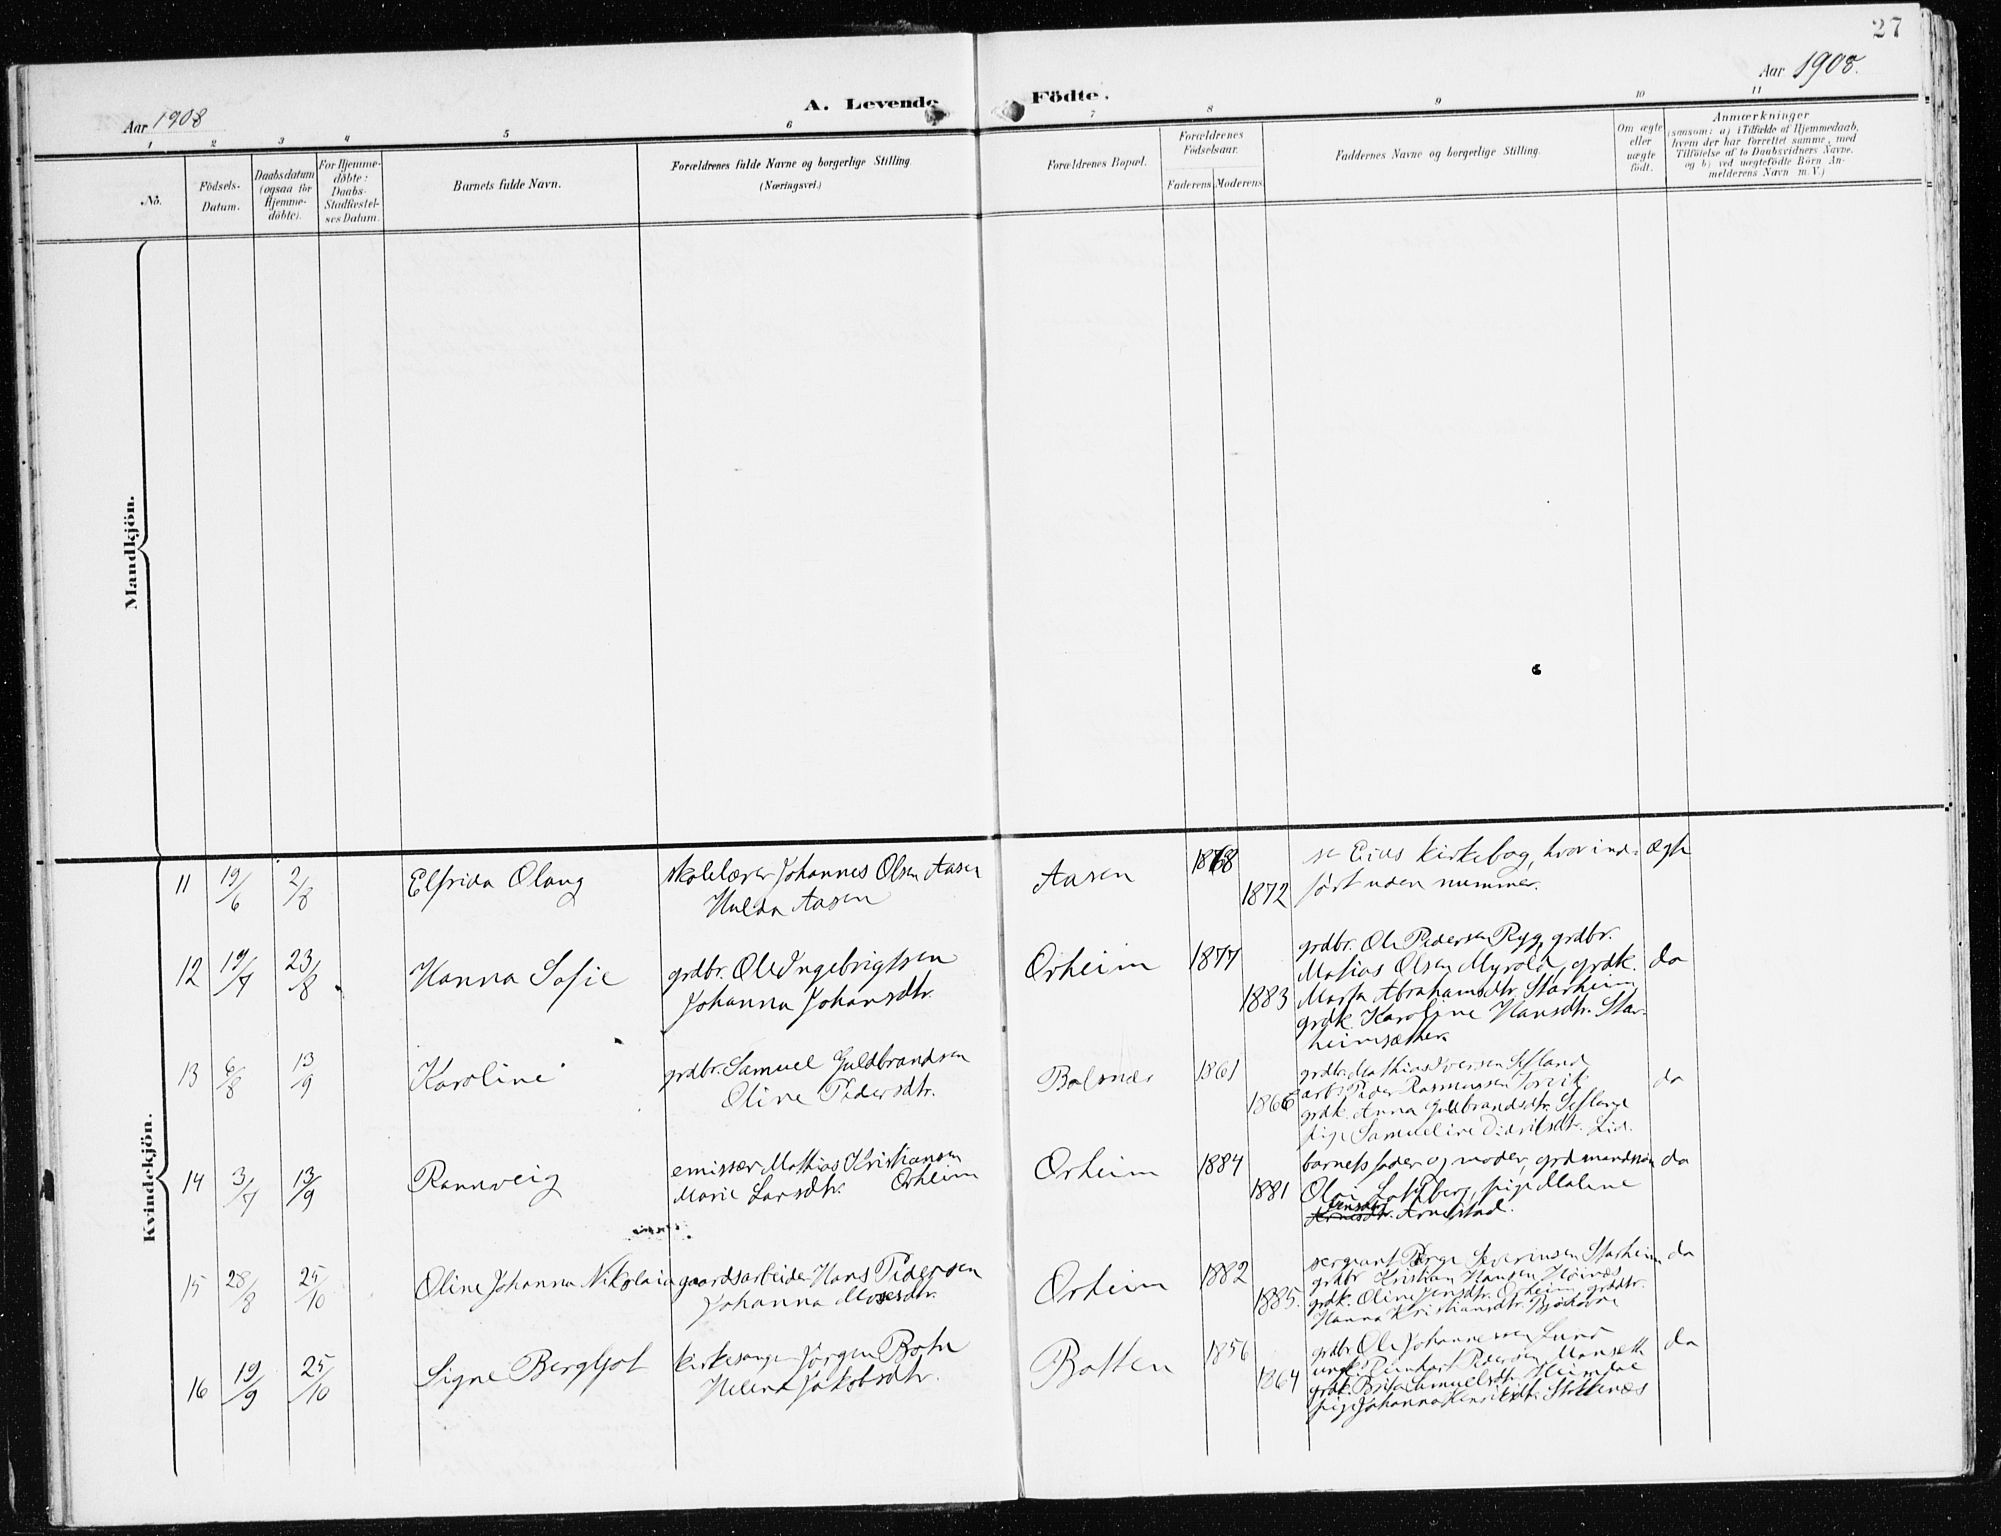 27
Aar 1908
A. Levende Födte.
Aar 1908.
1 2 3 4 5 6 7 8 9 10 11
No.
Födsels-
Datum.
Daabsdatum
(ogsaa for
Hjemme-
döbte).
For Hjemme-
döbte:
Daabs-
Stadfæstel-
ses Datum.
Barnets fulde Navn.
Forældrenes fulde Navne og borgerlige Stilling.
(Næringsvei.)
Forældrenes Bopæl.
Forældrenes
Födselsaar.
Faderens Moderens
Faddernes Navne og borgerlige Stilling.
Om ægte
eller
uægte
födt.
Anmærkninger
(saasom: a) i Tilfælde af Hjemmedaab,
hvem der har forrettet samme, med
Tilföielse af to Daabsvidners Navne,
og b) ved uegtefödte Börn An-
melderens Navn m. V.)
Mandkjön.
Kvindekjön.
11 19/6 2/8 Elfrida Olaug
skolelærer Johannes Olsen Aasen
Hulda Aasen
Aasen
1868
1872
se Eids kirkebog, hvor ind-
ført uden nummer.
ægte
12 19/7 23/8 Hanna Sofie
grdbr. Ole Ingebrigtsen
Johanna Johansdtr.
Orheim
1877
1883
grdbr. Ole Pedersen Ryg, grdbr.
Matias Olsen Myrold, grdk.
Marta Abrahamsdtr. Starheim
grdk. Karoline Hansdtr. Star-
heimsæther
do
13 6/8 13/9 Karoline
grdbr. Samuel Guldbrandsen
Oline Pedersdtr.
Balsnes
1861
1866
grdbr. Mathias Iversen Sefland
arb. Peder Rasmussen
grdk. Anna Guldbrandsdtr. Sefland
pige Samueline Didriksdtr. Lid.
do
14 3/7 13/9 Rannveig
emissær Mathias Kristiansen
Marie Larsdtr. Orheim
Orheim
1884
1881
barnets fader og moder, grdmandssøn
Olai, pige Malene
Arnestad.
do
15 28/8 25/10 Oline Johanna Nikolaia
gaardsarbeider Hans Pedersen
Johanna Mosesdtr.
Orheim
1882
1885.
sergeant Severinsen Starheim
grdbr Kristian Hansen Høinæs
grdk. Oline Jensdtr. Orheim, grddtr.
Hanna Kristiansdtr.
do
16 19/9 25/10 Signe Bergljot
kirkesanger Jørgen Botn
Helena Jakobsdtr.
Botten
1856
1864
grdbr. Ole Johannessen Lund
ungk. Reinhart Pedersen Maurseth
grdk. Brita Samuelsdtr. Heimdal
pige Johanna Henriksdtr. Stokkenæs
do